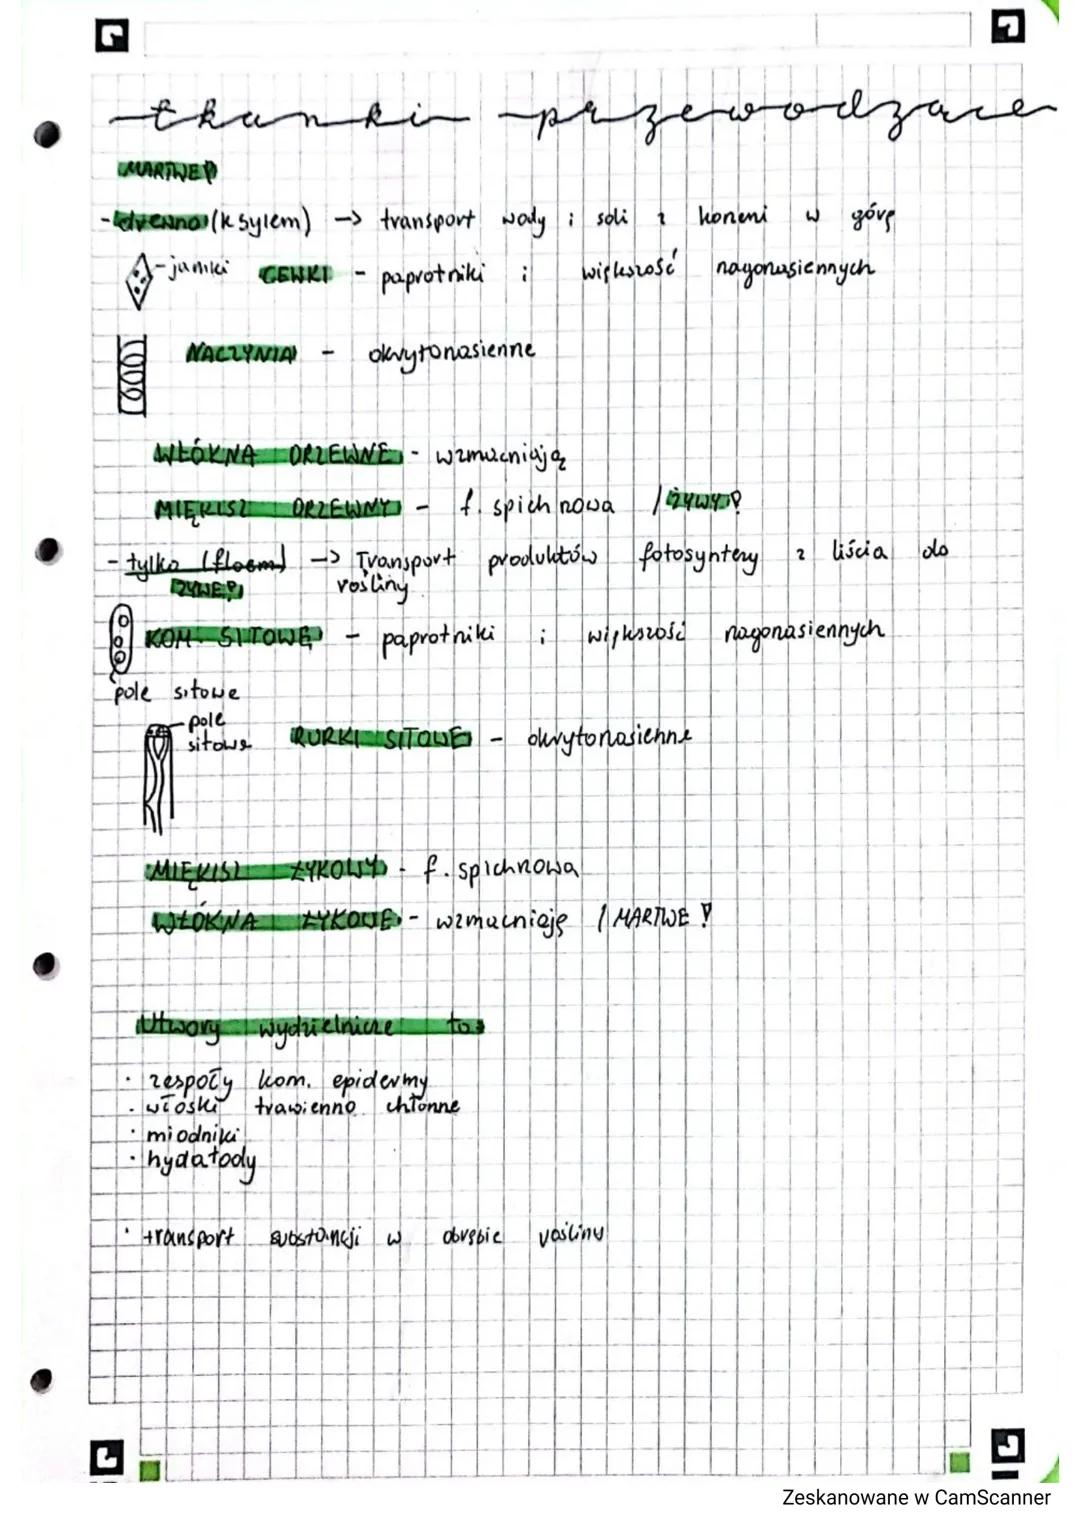 tkanki przewodzące
MARTWE!
- drewno (ksylem) -> transport wody i soli z korzeni w górę
- jamki CEWKI - paprotniki i większość nagonasiennych
NACZYNIA - okrytonasienne
WŁÓKNA DRZEWNE - wzmacniają
MIĘKISZ DRZEWNY - f. spichnowa / ŻYWY!
- łyko (floem) -> Transport produktów fotosyntezy z liścia do
ŻYWE! rośliny
KOM. SITOWE - paprotniki i większość nagonasiennych
pole sitowe
pole
sitowe RURKI SITOWE - okrytonasienne
MIĘKISZ ŁYKOWY - f. spichnowa
WŁÓKNA ŁYKOWE - wzmacniają / MARTWE!
Utwory wydzielnicze to:
• zespoły kom. epidermy
• włoski trawienno chłonne
• miodniki
• hydatody
• transport substancji w obrębie rośliny
Zeskanowane w CamScanner